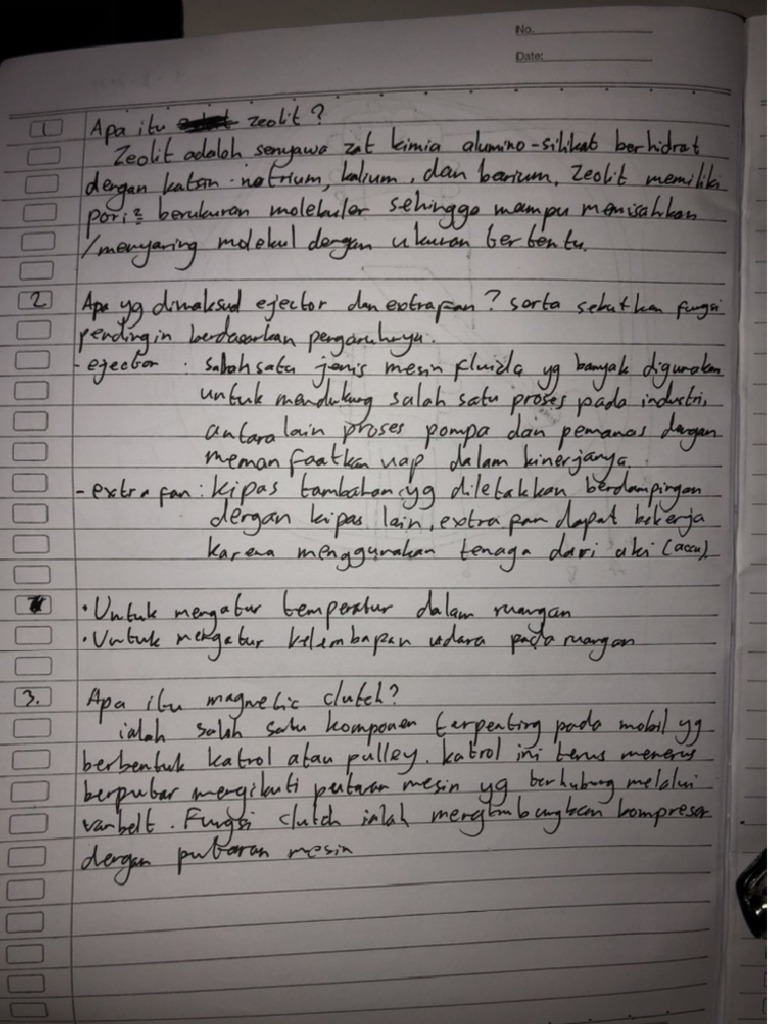 No.
Date:
1 Apa itu zeolit?
Zeolit adalah senyawa zat kimia alumino-silikat berhidrat
dengan kation natrium, kalium, dan barium, Zeolit memiliki
pori² berukuran molekuler sehingga mampu memisahkan
/menyaring molekul dengan ukuran tertentu.
2 Apa yg dimaksud ejector dan extrapan? serta sebutkan fungsi
pendingin berdasarkan pengaruhnya.
- ejector : salah satu jenis mesin fluida yg banyak digunakan
untuk mendukung salah satu proses pada industri,
antara lain proses pompa dan pemanas dengan
memanfaatkan uap dalam kinerjanya.
- extra fan : kipas tambahan yg diletakkan berdampingan
dengan kipas lain, extra pan dapat bekerja
karena menggunakan tenaga dari aki (accu)
• Untuk mengatur temperatur dalam ruangan
• Untuk mengatur kelembapan udara pada ruangan
3. Apa itu magnetic clutch?
ialah salah satu komponen terpenting pada mobil yg
berbentuk katrol atau pulley. katrol ini terus menerus
berputar mengikuti putaran mesin yg terhubung melalui
vanbelt. Fungsi clutch ialah menghubungkan kompresor
dengan putaran mesin